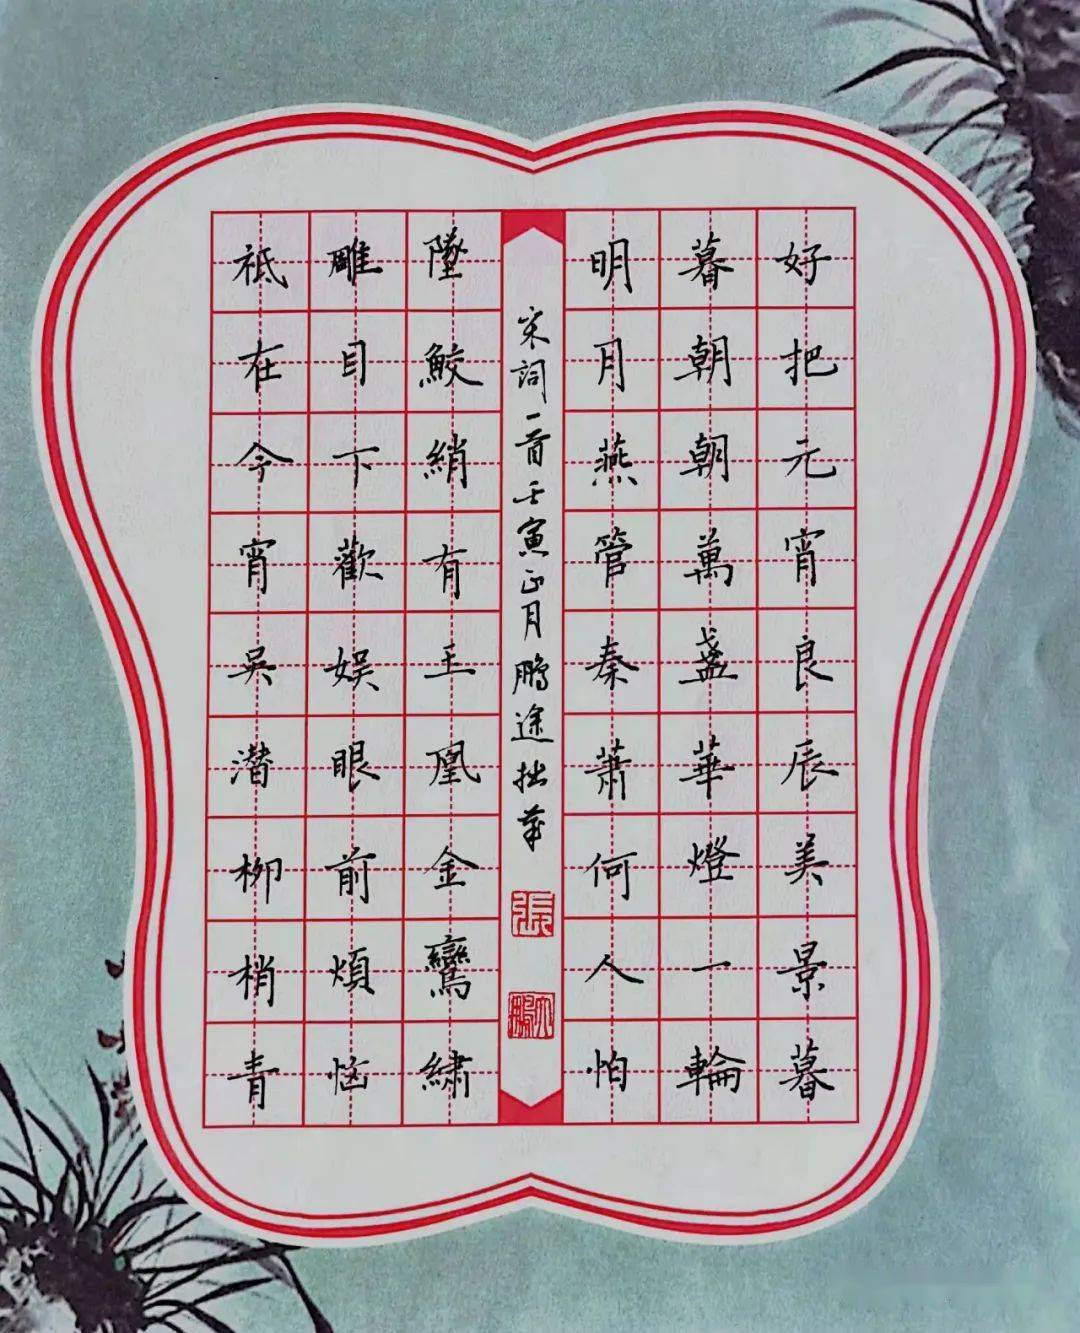 好把元宵良辰美景暮
暮朝朝萬盞華燈一輪
明月燕管秦蕭何人怕
墜鮫綃有王凰金鸞繡
雕目下歡娛眼前煩惱
祇在今宵吳潜柳梢青
宋詞一首壬寅正月鵬途拙筆
張